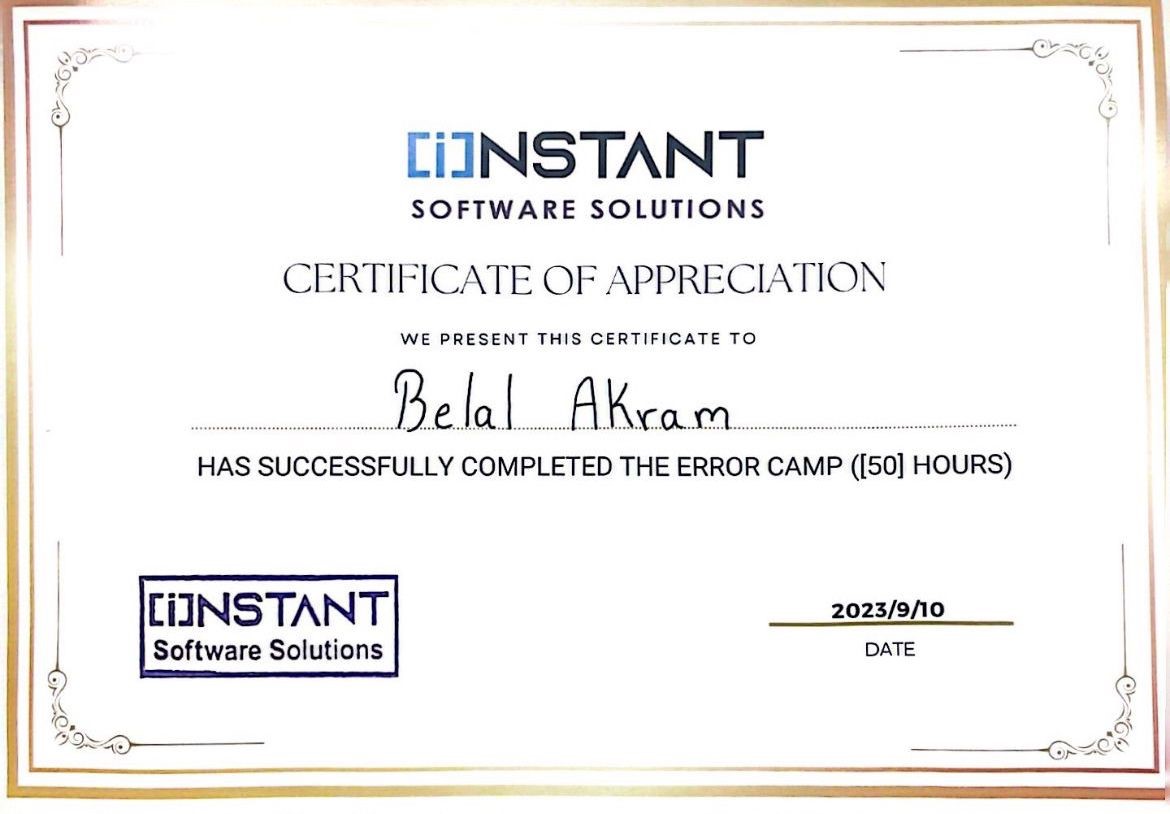 [i]NSTANT
SOFTWARE SOLUTIONS
CERTIFICATE OF APPRECIATION
WE PRESENT THIS CERTIFICATE TO
Belal AKram
HAS SUCCESSFULLY COMPLETED THE ERROR CAMP ([50] HOURS)
[i]NSTANT
Software Solutions
2023/9/10
DATE